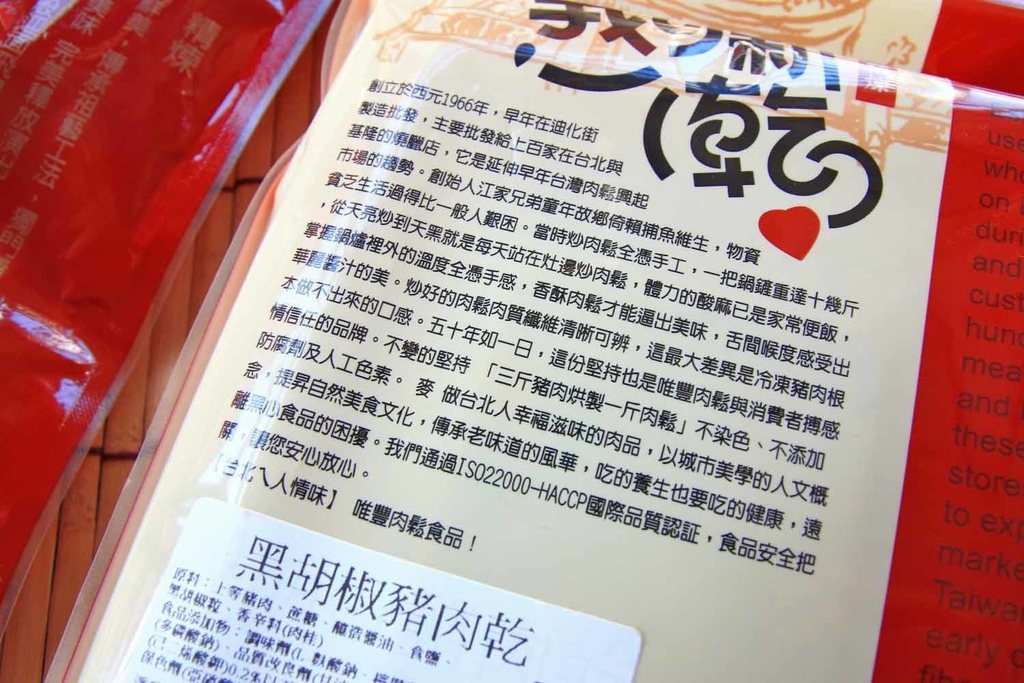 精煉
創立於西元1966年，早年在迪化街
製造批發，主要批發給上百家在台北與
基隆的燒臘店，它是延伸早年台灣肉鬆興起
市場的趨勢。創始人江家兄弟童年故鄉倚賴捕魚維生，物資
貧乏生活過得比一般人艱困。當時炒肉鬆全憑手工，一把鍋鏟重達十幾斤
，從天亮炒到天黑就是每天站在灶邊炒肉鬆，體力的酸麻已是家常便飯，
掌握鍋爐裡外的溫度全憑手感，香酥肉鬆才能逼出美味，舌間喉度感受出
華麗醬汁的美。炒好的肉鬆肉質纖維清晰可辨，這最大差異是冷凍豬肉根
本做不出來的口感。五十年如一日，這份堅持也是唯豐肉鬆與消費者搏感
情信任的品牌。不變的堅持「三斤豬肉烘製一斤肉鬆」不染色、不添加
防腐劑及人工色素。 麥 做台北人幸福滋味的肉品，以城市美學的人文概
念，提昇自然美食文化，傳承老味道的風華，吃的養生也要吃的健康，遠
離黑心食品的困擾。我們通過ISO22000-HACCP國際品質認証，食品安全把
關，讓您安心放心。
【台北ㄟ人情味】 唯豐肉鬆食品！
黑胡椒豬肉乾
原料：上等豬肉、蔗糖、釀造醬油、食鹽、
黑胡椒粒、香辛料(肉桂)
食品添加物：調味劑(L-麩酸鈉
(多磷酸鈉)、品質改良劑
(己二烯酸鉀)0.2%以
保色劑
use
who
on
duri
and
cust
hund
mea
and
these
store
to exp
marke
Taiwa
early